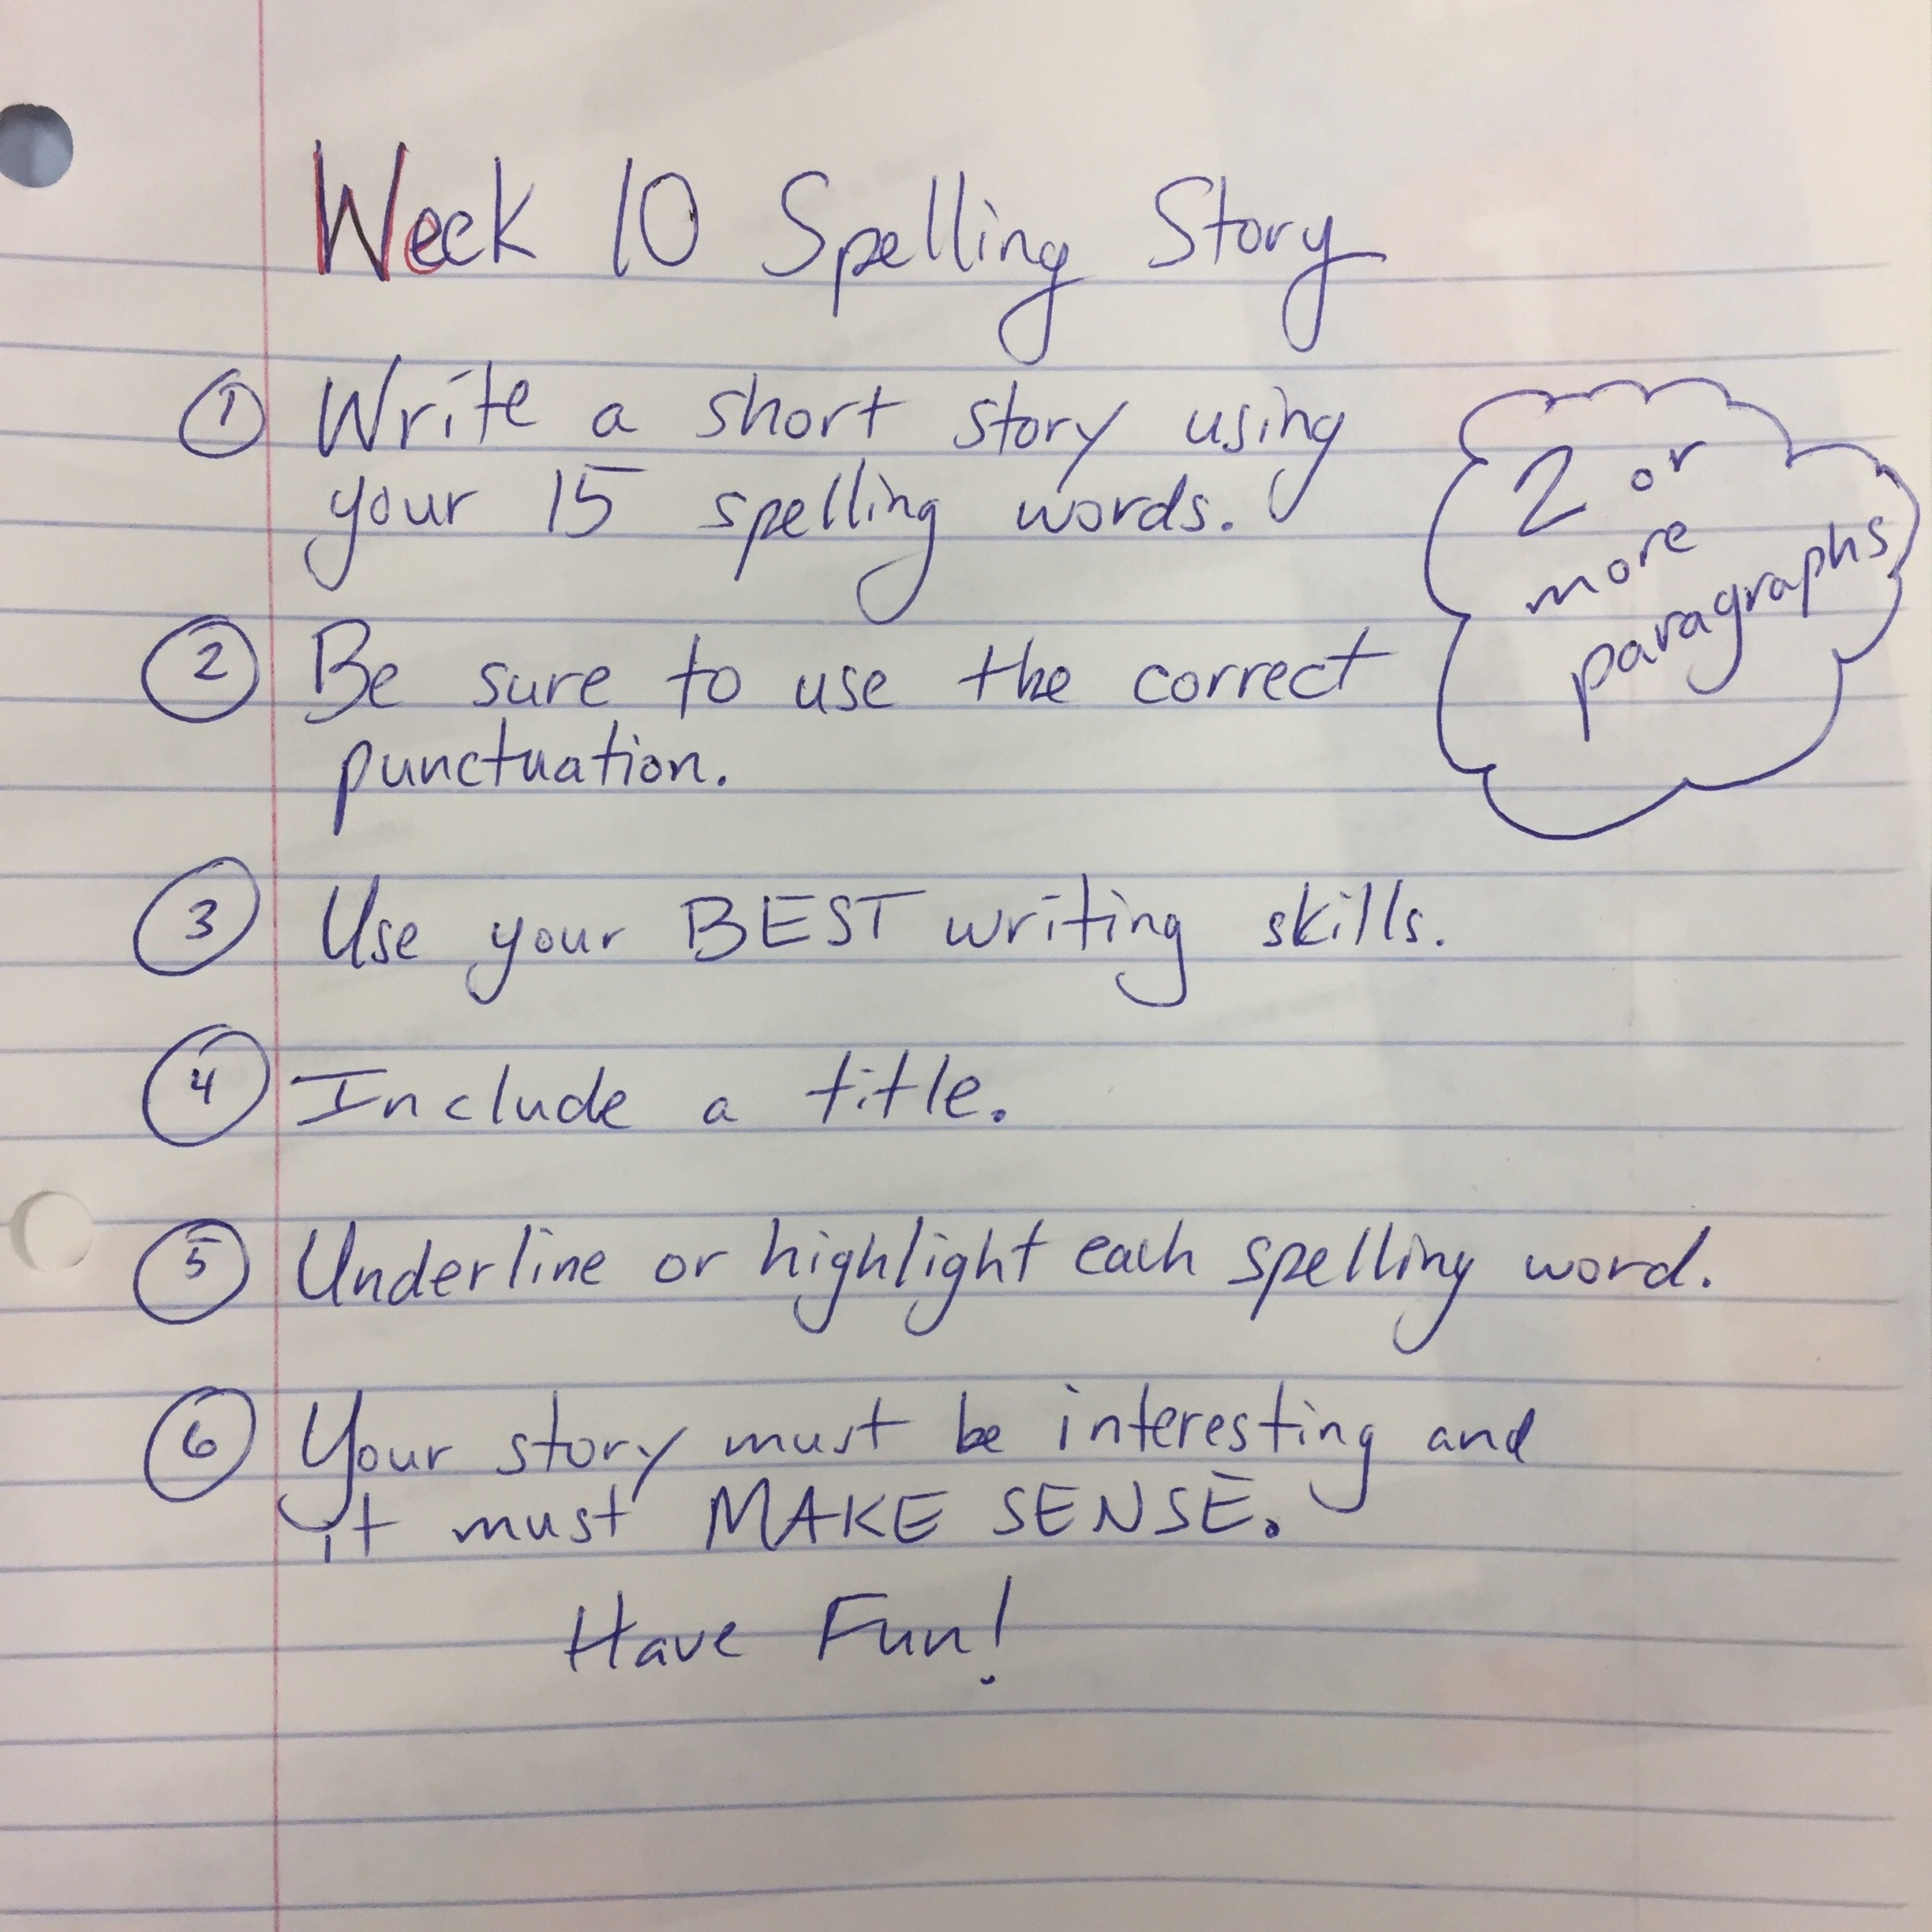 Week 10 Spelling Story
① Write a short story using
your 15 spelling words.
2 or
more
paragraphs
② Be sure to use the correct
punctuation.
③ Use your BEST writing skills.
④ Include a title.
⑤ Underline or highlight each spelling word.
⑥ Your story must be interesting and
it must MAKE SENSE.
Have Fun!